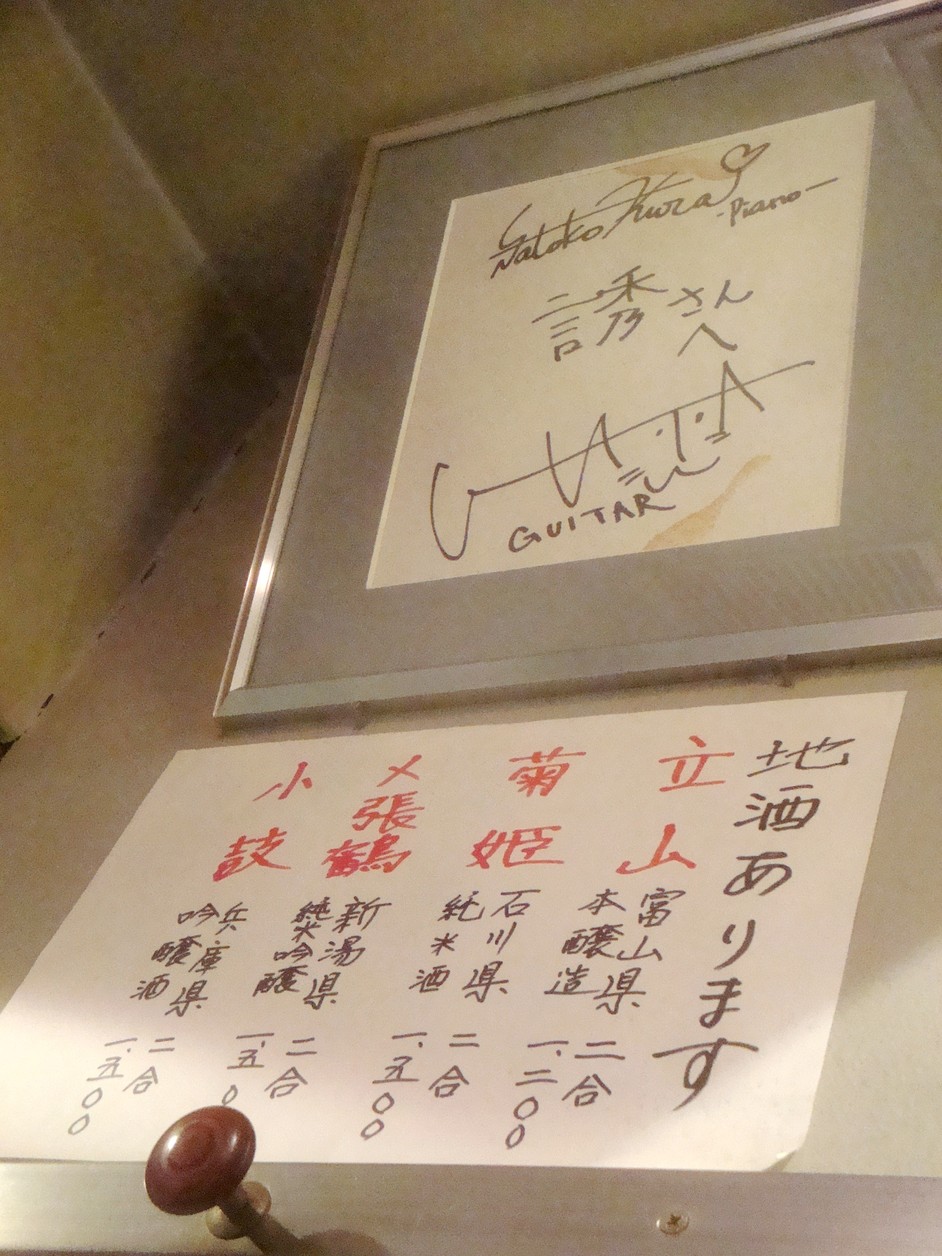 Satoko Kura
-Piano-
誘さん
へ
GUITAR
地酒あります
立山
富山県
本醸造
二合
一、二〇〇
菊姫
石川県
純米酒
二合
一、五〇〇
〆張鶴
新潟県
純米吟醸
二合
一、五〇
小鼓
兵庫県
吟醸酒
二合
一、五〇〇